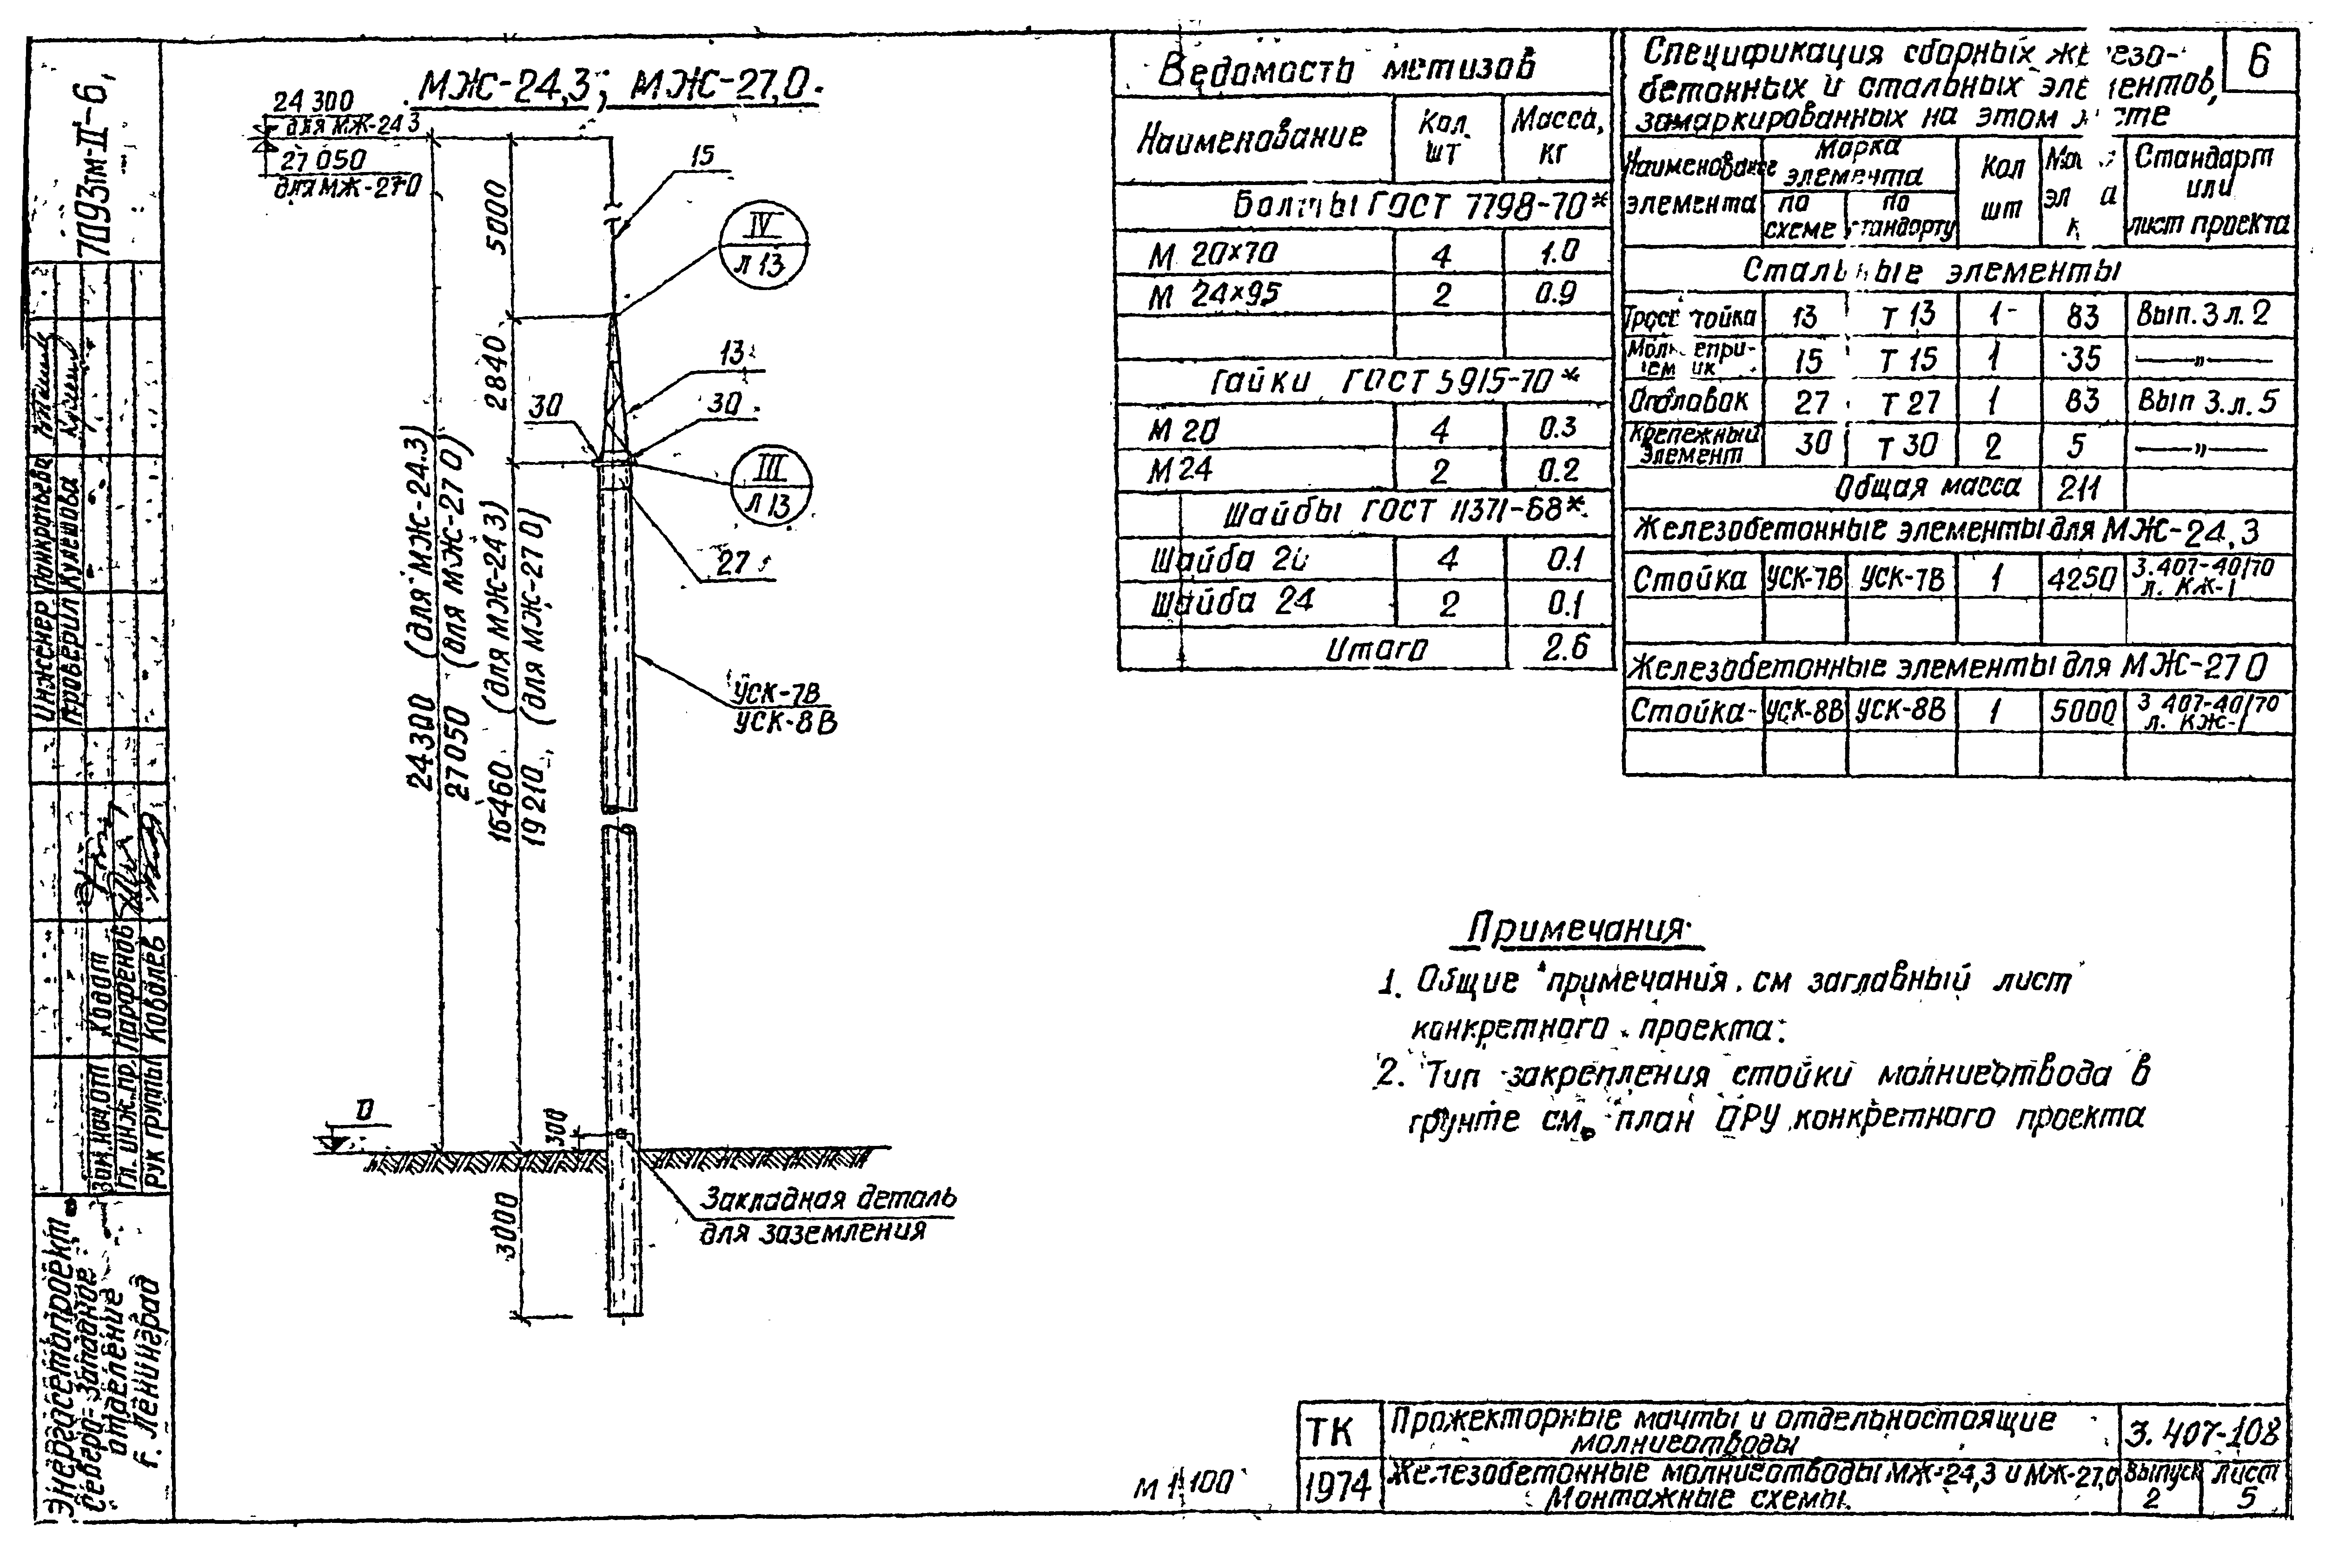 МЖ-24,3; МЖ-27,0.
24 300
для МЖ-24 3
27 050
для МЖ-27 0
15
5000
IV
л 13
2840
13
30
30
III
л 13
27
24300 (для МЖ-24.3)
27050 (для МЖ-27 0)
16460 (для МЖ-24 3)
19210 (для МЖ-27 0)
УСК-7В
УСК-8В
0
300
3000
Закладная деталь
для заземления
Ведомость метизов
Наименование
Кол. шт
Масса, кг
Болты ГОСТ 7798-70*
М 20×70 4 1.0
М 24×95 2 0.9
Гайки ГОСТ 5915-70*
М 20 4 0.3
М 24 2 0.2
Шайбы ГОСТ 11371-68*
Шайба 20 4 0.1
Шайба 24 2 0.1
Итого 2.6
6
Спецификация сборных железо-
бетонных и стальных элементов,
замаркированных на этом листе
Наименование элемента
Марка элемента
по схеме
по стандарту
Кол шт
Стандарт или лист проекта
Стальные элементы
Тросостойка 13 Т 13 1 83 Вып. 3 л. 2
Молниепри-
емник 15 Т 15 1 35 —"—
Оголовок 27 Т 27 1 83 Вып 3. л. 5
Крепежный
элемент 30 Т 30 2 5 —"—
Общая масса 211
Железобетонные элементы для МЖ-24,3
Стойка УСК-7В УСК-7В 1 4250 3.407-40/70
л. КЖ-1
Железобетонные элементы для МЖ-27 0
Стойка УСК-8В УСК-8В 1 5000 3 407-40/70
л. КЖ-1
Примечания
1. Общие примечания см заглавный лист
конкретного проекта.
2. Тип закрепления стойки молниеотвода в
грунте см. план ОРУ конкретного проекта
М 1:100
ТК
1974
Прожекторные мачты и отдельностоящие
молниеотводы
3.407-108
Железобетонные молниеотводы МЖ-24,3 и МЖ-27,0
Монтажные схемы.
Выпуск
2
Лист
5
7093тм-II-6,
Инженер Панкратьева
Проверил Кулешова
Зам. нач. отп Ходот
Гл. инж. пр. Парфенов
Рук группы Ковалев
Энергосетопроект
Северо-Западное
отделение
г. Ленинград